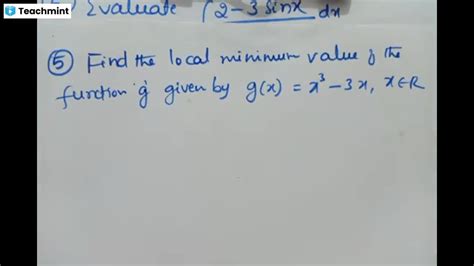 Teachmint
Evaluate ∫ 2-3 sinx dx
⑤ Find the local minimum value of the
function 'g' given by g(x) = x³-3x, x∈R